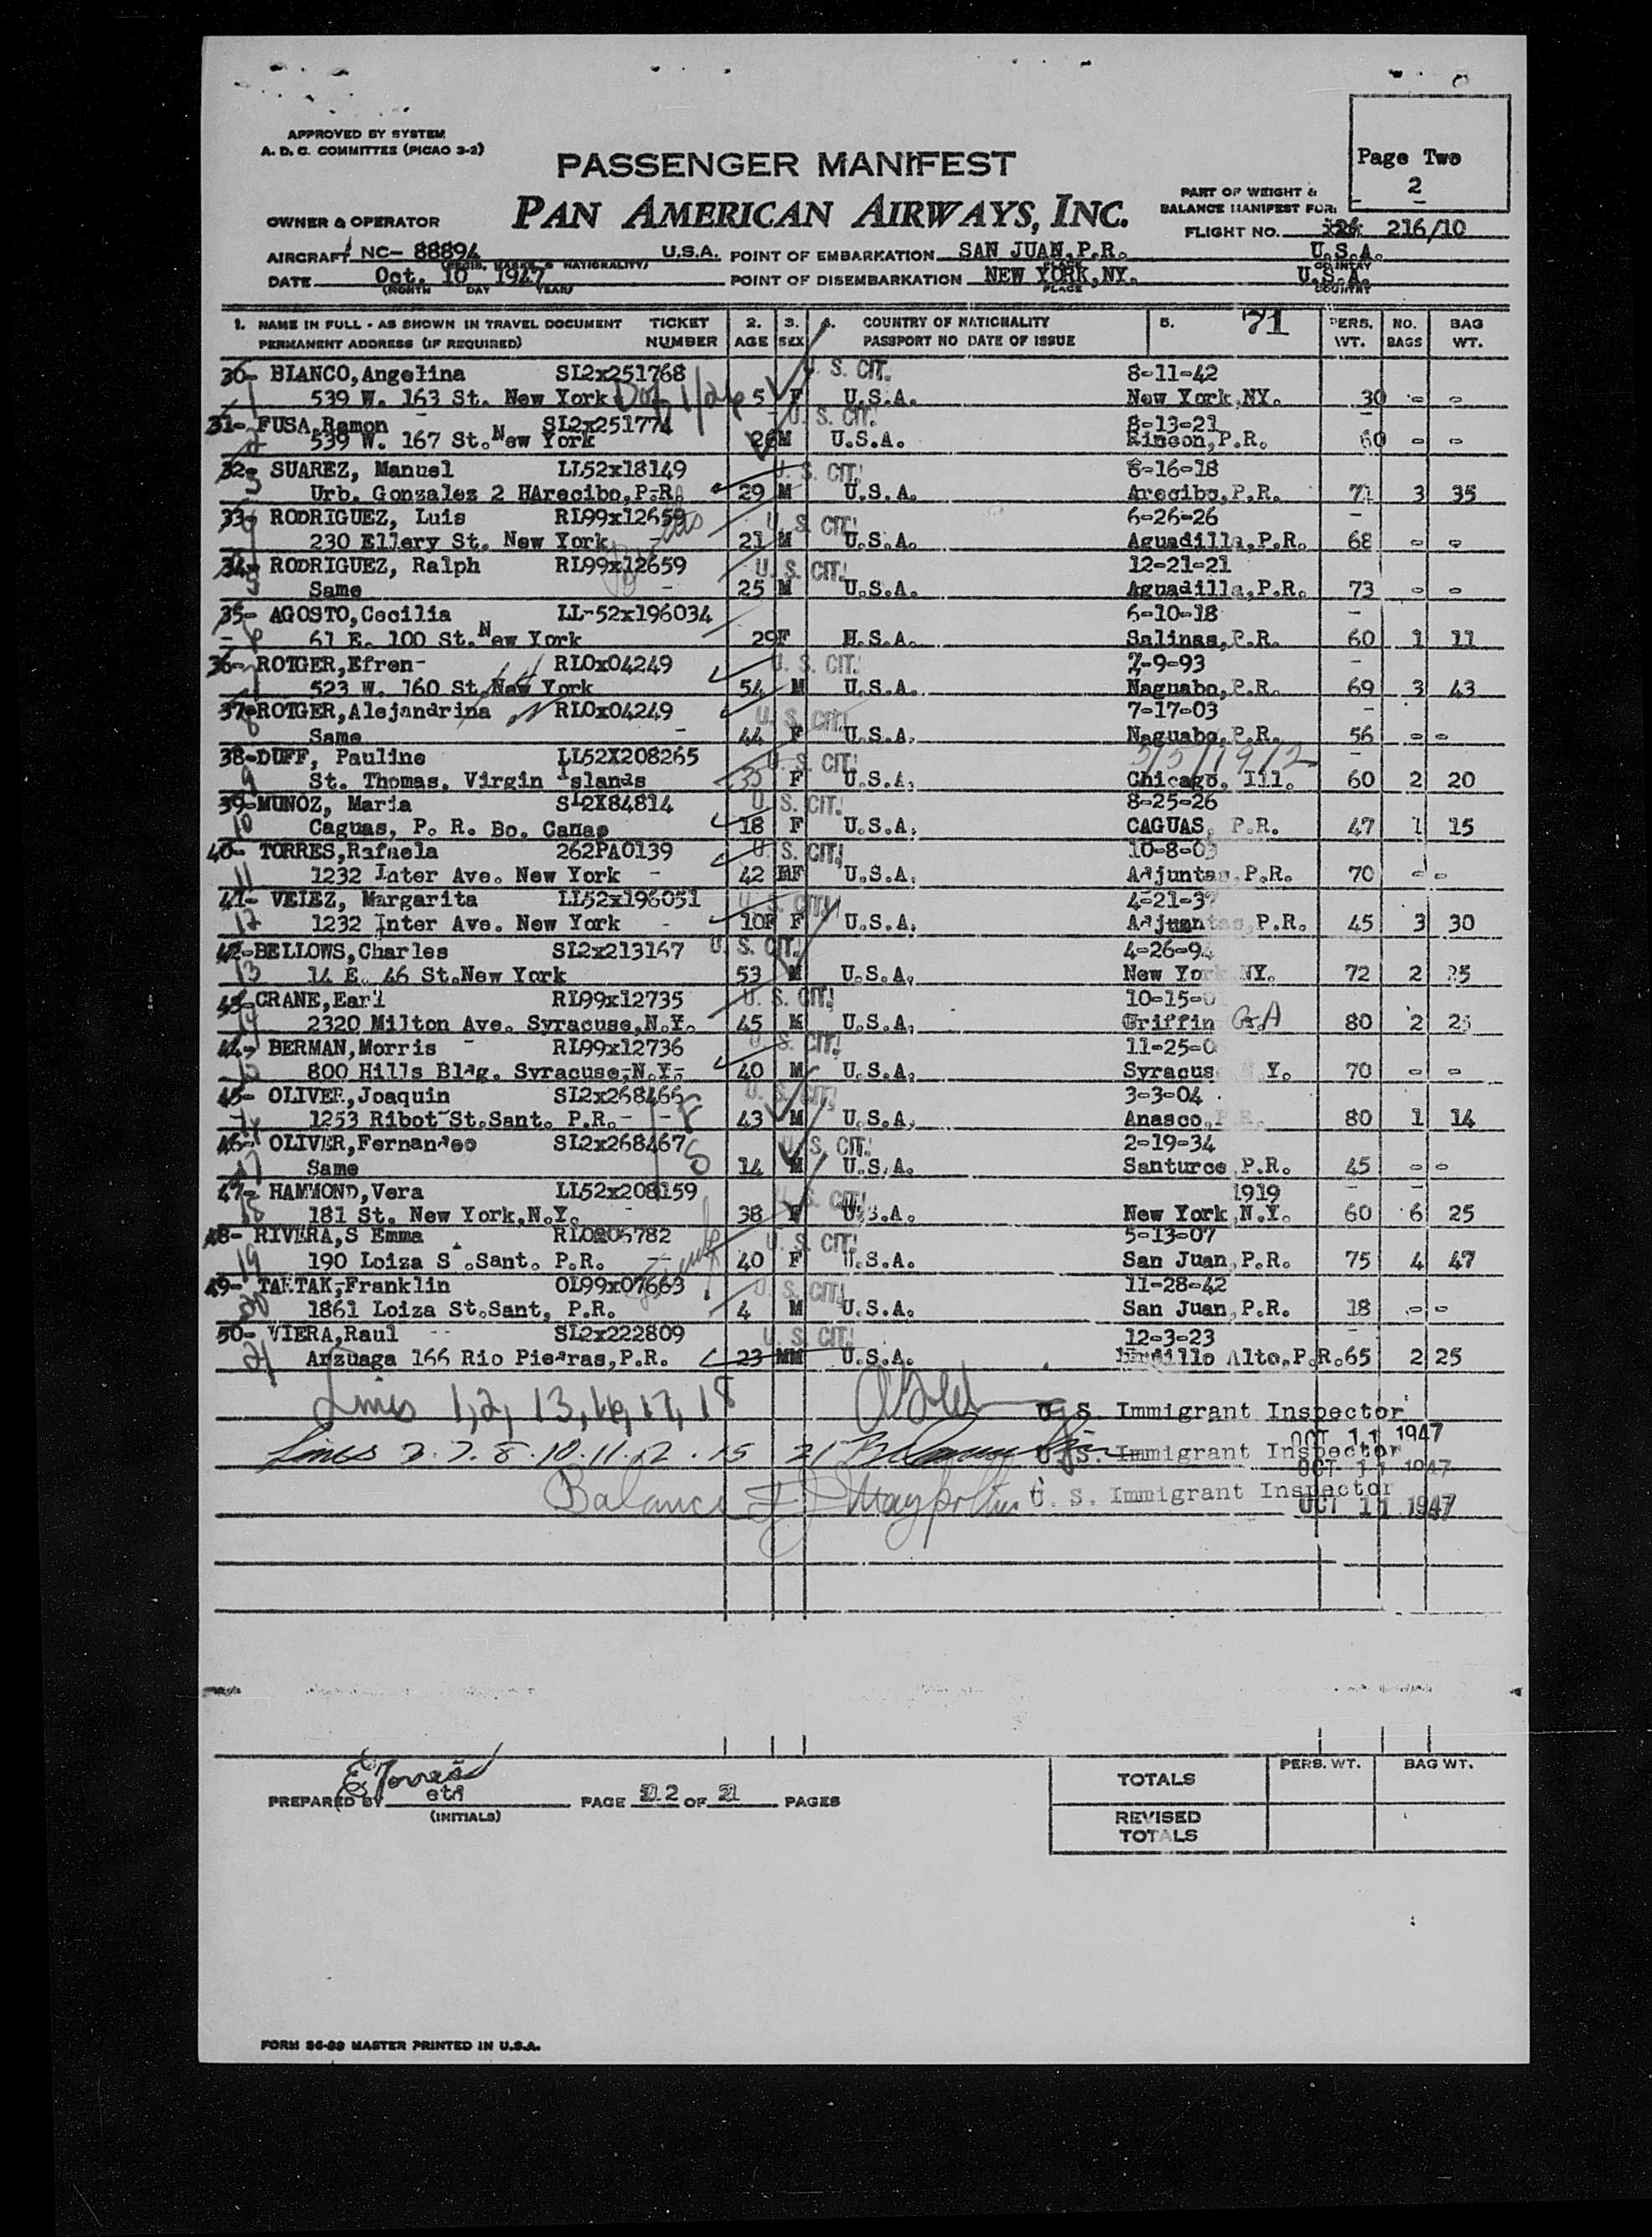 APPROVED BY SYSTEM
A. D. C. COMMITTEE (PICAO 3-2)
PASSENGER MANIFEST
Page Two
2
PART OF WEIGHT &
BALANCE MANIFEST FOR:
OWNER & OPERATOR
PAN AMERICAN AIRWAYS, INC.
FLIGHT NO. 216/10
AIRCRAFT NC- 88894 U.S.A. POINT OF EMBARKATION SAN JUAN, P.R. U.S.A.
DATE Oct. 10 1947 POINT OF DISEMBARKATION NEW YORK, NY. U.S.A.
(MONTH DAY YEAR) PLACE COUNTRY
1. NAME IN FULL - AS SHOWN IN TRAVEL DOCUMENT TICKET 2. 3. 4. COUNTRY OF NATIONALITY 5. 71 PERS. NO. BAG
PERMANENT ADDRESS (IF REQUIRED) NUMBER AGE SEX PASSPORT NO DATE OF ISSUE WT. BAGS WT.
30- BLANCO, Angelina SL2x251768 U. S. CIT. 8-11-42
1 539 W. 163 St. New York 5 F U.S.A. New York, NY. 30 - -
31- FUSA, Ramon SL2x251774 U. S. CIT. 8-13-21
2 539 W. 167 St. New York 26 M U.S.A. Rincon, P.R. 60 - -
32- SUAREZ, Manuel LL52x18149 U. S. CIT. 8-16-18
3 Urb. Gonzalez 2 HArecibo, P.R. 29 M U.S.A. Arecibo, P.R. 71 3 35
33- RODRIGUEZ, Luis RL99x12659 U. S. CIT. 6-26-26
4 230 Ellery St. New York 21 M U.S.A. Aguadilla, P.R. 68 - -
34- RODRIGUEZ, Ralph RL99x12659 U. S. CIT. 12-21-21
5 Same 25 M U.S.A. Aguadilla, P.R. 73 - -
35- AGOSTO, Cecilia LL-52x196034 6-10-18
6 61 E. 100 St. New York 29 F U.S.A. Salinas, P.R. 60 1 11
36- ROTGER, Efren- RL0x04249 U. S. CIT. 7-9-93
7 523 W. 160 St. New York 54 M U.S.A. Naguabo, P.R. 69 3 43
37- ROTGER, Alejandrina RL0x04249 U. S. CIT. 7-17-03
8 Same 44 F U.S.A. Naguabo, P.R. 56 - -
38- DUFF, Pauline LL52X208265 U. S. CIT. 3/5/1912
9 St. Thomas, Virgin Islands 35 F U.S.A. Chicago, Ill. 60 2 20
39- MUNOZ, Maria SL2X84814 U. S. CIT. 8-25-26
10 Caguas, P. R. Bo. Canas 18 F U.S.A. CAGUAS, P.R. 47 1 15
40- TORRES, Rafaela 262PA0139 U. S. CIT. 10-8-05
11 1232 Inter Ave. New York - 42 F U.S.A. Adjuntas, P.R. 70 - -
41- VELEZ, Margarita LL52x196051 U. S. CIT. 4-21-37
12 1232 Inter Ave. New York - 10F F U.S.A. Adjuntas, P.R. 45 3 30
42- BELLOWS, Charles SL2x213167 U. S. CIT. 4-26-94
13 14 E. 46 St. New York 53 M U.S.A. New York NY. 72 2 25
43- CRANE, Earl RL99x12735 U. S. CIT. 10-15-0
14 2320 Milton Ave. Syracuse, N.Y. 45 M U.S.A. Griffin GA 80 2 25
44- BERMAN, Morris RL99x12736 U. S. CIT. 11-25-0
15 800 Hills Bldg. Syracuse, N.Y. 40 M U.S.A. Syracuse N.Y. 70 - -
45- OLIVER, Joaquin SL2x268466 U. S. CIT. 3-3-04
16 1253 Ribot St. Sant. P.R. 43 M U.S.A. Anasco, P.R. 80 1 14
46- OLIVER, Fernandeo SL2x268467 U. S. CIT. 2-19-34
17 Same 14 M U.S.A. Santurce, P.R. 45 - -
47- HAMMOND, Vera LL52x208159 U. S. CIT. 1919
18 181 St. New York, N.Y. 38 F U.S.A. New York, N.Y. 60 6 25
48- RIVERA, S Emma U. S. CIT. 5-13-07
19 190 Loiza S .Sant. P.R. 40 F U.S.A. San Juan, P.R. 75 4 47
49- TARTAK, Franklin OL99x07663 U. S. CIT. 11-28-42
20 1861 Loiza St. Sant, P.R. 4 M U.S.A. San Juan, P.R. 18 - -
50- VIERA, Raul SL2x222809 U. S. CIT. 12-3-23
21 Arzuaga 166 Rio Piedras, P.R. 23 M U.S.A. Alto, P.R. 65 2 25
Lines 1, 2, 13, 16, 17, 18 U. S. Immigrant Inspector
OCT 11 1947
Lines 3. 7. 8. 10. 11. 12. 15 21 U. S. Immigrant Inspector
OCT 11 1947
Balance U. S. Immigrant Inspector
OCT 11 1947
E. Torres
PREPARED BY PAGE 2 OF 2 PAGES
(INITIALS)
PERS. WT. BAG WT.
TOTALS
REVISED
TOTALS
FORM 36-99 MASTER PRINTED IN U.S.A.